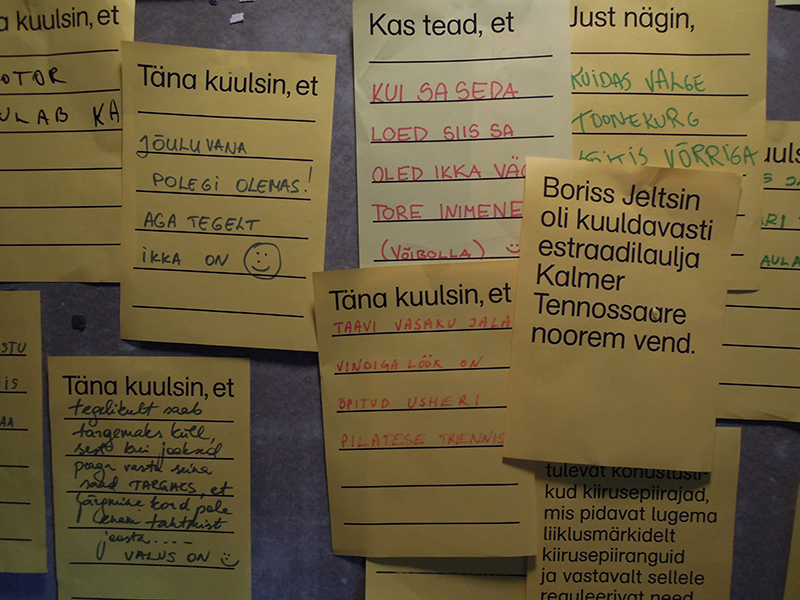 a kuulsin, et
OTOR
ULAB KA
Täna kuulsin, et
JÕULUVANA
POLEGI OLEMAS!
AGA TEGELT
IKKA ON
Kas tead, et
KUI SA SEDA
LOED SIIS SA
OLED IKKA VÄG
TORE INIMENE
(VÕIBOLLA)
Just nägin,
KUIDAS VALGE
TOONEKURG
VÕRRIGA
Boriss Jeltsin
oli kuuldavasti
estraadilaulja
Kalmer
Tennossaare
noorem vend.
Täna kuulsin, et
TAAVI VASAKU JALA
VINDIGA LÖÖK ON
ÕPITUD USHERI
PILATESE TRENNIS
STU
IIS
AA
Täna kuulsin, et
tegelikult saab
targemaks küll,
sest kui jooksed
peaga vastu seina
saad TARGAKS, et
järgmine kord pole
enam tahtmist
joosta.....
VALUS ON
tulevat konustusli-
kud kiirusepiirajad,
mis pidavat lugema
liiklusmärkidelt
kiirusepiiranguid
ja vastavalt sellele
reguleerivat need